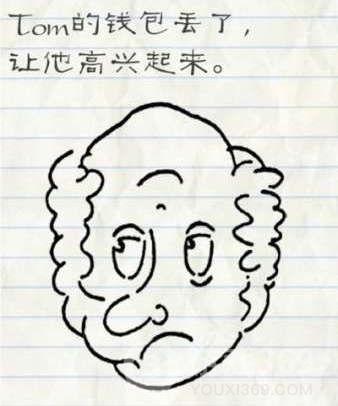 Tom的钱包丢了，
让他高兴起来。
YOUXI369.COM